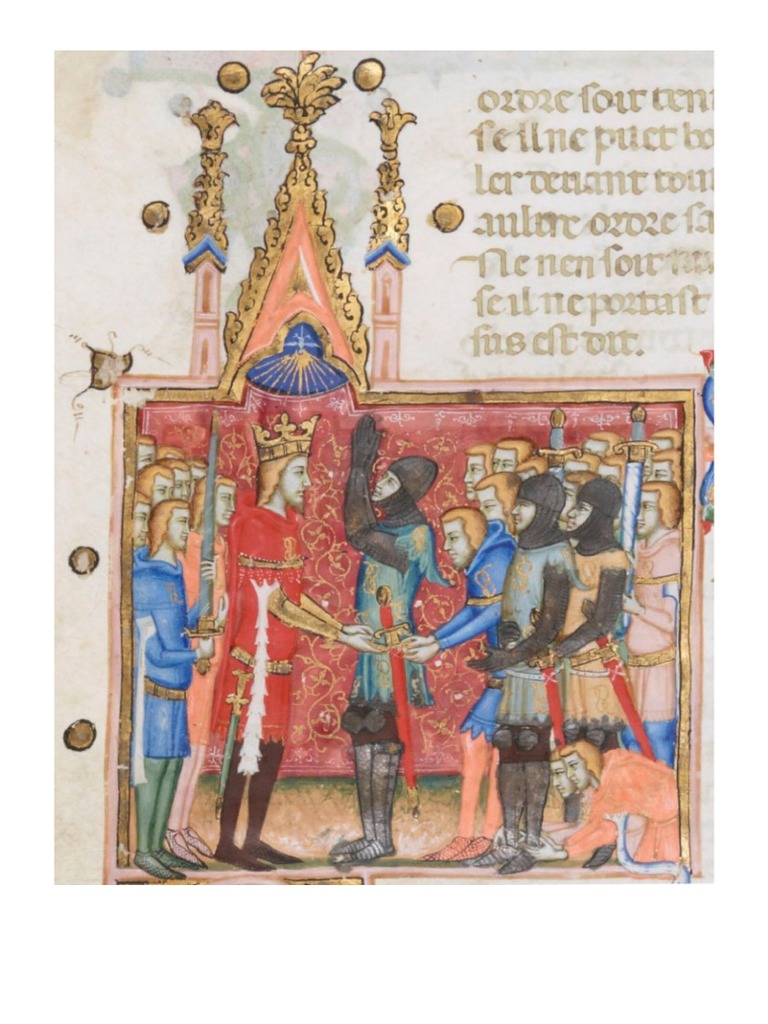 ordre soit ten
se il ne puet bo
ler devant tou
autre ordre sa
Ne nen soit
se il ne portast
sus est dit.